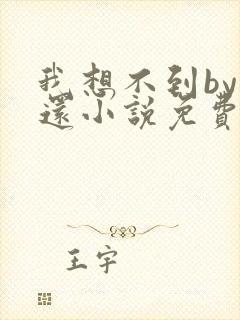 我想不到by
還小說免費
王宇